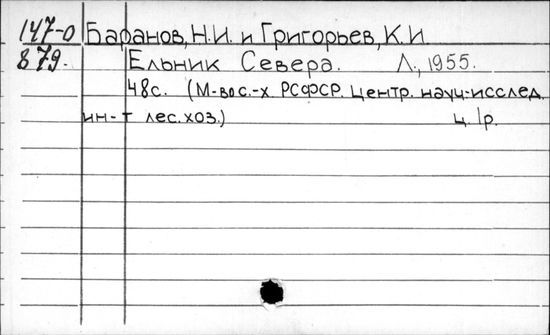 147-0 Баранов, Н.И. и Григорьев, К.И.
879. Ельник Севера. Л., 1955.
48с. (М-во с.-х РСФСР. Центр. науч-исслед.
ин-т лес. хоз.) ц. 1р.